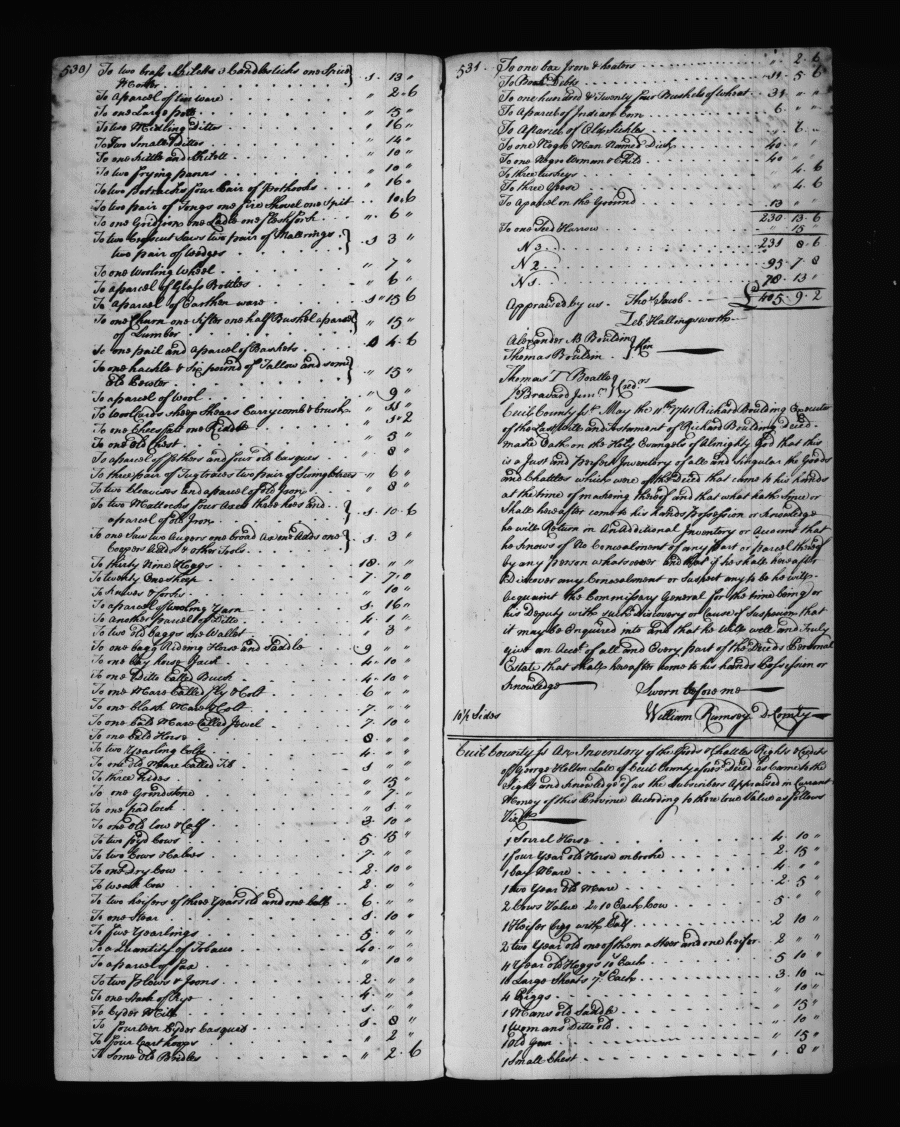 530)
To two brass Skilletts 3 Candlesticks one Spice } 1 .. 13 "
Morter
To a parcel of tin ware " 2 .. 6
To one Large pott " 15 "
To two Midling Ditto " 16 "
To two Small Dittos " 14 "
To one Kittle and Skilett " 10 "
To two frying panns " 10 "
To two Potracks four Pair of Pothooks " 16 "
To two pair of Tongs one fire Shovel one Spit " 10 .. 6
To one Gridiron one Ladle one fleshfork " 6 "
To two Croscut Saws two pair of Malerings } 1 3 "
two pair of Wedges
To one Wooling Wheel " 7 "
To a parcel of Glass Bottles " 6 "
To a parcel of Earthen ware 1 " 15 6
To one Churn one Sifter one half Bushel a parcel } " 15 "
of Lumber
To one pail and a parcel of Baskets 4 .. 6
To one hackle & Six pound of Tallow and some } " 15 "
old Pewter
To a parcel of Wool " 9 "
To Wool Cards Sheep Shears Currycomb & brush
To one Cheesfatt one Riddle " 1 .. 2
To one old Chest " 3 "
To a parcel of feathers and four old Casques " 8 "
To three pair of two pair of Swingletrees " 6 "
To two Cleavises and a parcel of old Iron " 8 "
To two Mattocks four Axes three hoes and } 1 .. 10 .. 6
a parcel of old Iron
To one Saw two Augers one broad Ax one Adds one } 1 .. 3 "
Coopers Adds & other Tools
To thirty Nine Hoggs 18 .. " "
To twenty One sheep 7 .. 7 .. 0
To knives & forks " 10 "
To a parcel of wooling Yarn 1 .. 16 "
To another parcel of Ditto 4 .. 1 "
To two old baggs one Wallet " 3 "
To one bagg Rideing Horse and Saddle 9 " "
To one bay horse Jack 4 .. 10 "
To one Ditto Called Buck 4 .. 10 "
To one Mare Called fly & Colt 6 " "
To one black Mare & Colt 7 " "
To one bald Mare Called Jewel 7 .. 10 "
To one bald Horse 8 " "
To two Yearling Colts 4 .. " "
To one old Mare Called Tib 1 " "
To three hides " 15 "
To one Grindstone " 7 "
To one padlock " 1 "
To one old Cow & Calf 3 .. 10 "
To two fryd Cows 5 .. 15 "
To two Cows & Calves 7 .. " "
To one Dry Cow 2 .. 10 "
To weak Cow 2 .. " "
To two heifors of three Years old and one bull 6 .. " "
To one Stear 1 .. 10 "
To five Yearlings 5 .. " "
To a Quantity of Tobaco 40 .. " "
To a parcel of flax " 10 "
To two plows & Irons 2 .. " "
To one Stack of Rye 4 .. " "
To Cyder Mill 1 .. " "
To fourteen Cyder Casques 1 .. 8 "
To four Cart hoops " 2 "
To Some old Bridles " 2 .. 6
531
To one box Iron & heaters " 2 .. 6
To Book Debts 11 .. 5 6
To one hundred & Twenty four Bushels of Wheat 31 " "
To A parcel of Indian Corn 6 " "
To A parcel of Old Sickles " 6 ..
To one Negro Man Named Dick 40 .. " "
To one Negro Woman & Child 40 " "
To three turkeys " 4 .. 6
To three Geese " 4 6
To A parcel on the Ground 13 " "
230 .. 13 .. 6
To one Seed Harrow " 15 "
231 8 .. 6
N 3
N 2 95 .. 7 .. 8
N 1 78 .. 13 "
£405 .. 9 .. 2
Appraised by us Thos. Jacob
Zeb Hollingsworth
Alexander A B Boulding } Kin
Thomas Bouldin
Thomas T Beattey } Credrs
Jn. Bravard Junr.
Cecil County Ss. May the 11th 1741 Richard Boulding Executor
of the Last will and testament of Richard Boulding Deced.
make Oath on the Holy Evangels of Almighty God that this
is a Just and perfect Inventory of all and Singular the Goods
and Chattles which were of the Deced that came to his hands
at the time of makeing thereof and that what hath Since or
Shall hereafter come to his hands Possession or Knowledge
he will Return in An additional Inventory or Account that
he knows of No Concealment of any part or parcel thereof
by any person whatsoever and that if he shall hereafter
Discover any Concealment or Suspect any to be he will
Acquaint the Commissary General for the time being or
his Deputy with such Discovery or Cause of Suspicion that
it may be Enquired into and that he will well and Truly
give an Acct. of all and Every part of the Deceds Personal
Estate that shall hereafter come to his hands Possession or
Knowledge
Sworn before me
10½ Sides
William Rumsey D Comty
Cecil County Ss An Inventory of the Goods & Chattles Rights & Credits
of George Holton Late of Cecil County aforsd. Deced as Came to the
Sight and Knowledge of us the Subscribers Appraised in Currant
Money of this Province According to there true Value as follows
Vizt.
1 Sorrel Horse 4 .. 10 "
1 four Year old Horse onbroke 2 .. 15 "
1 bay Mare 4 .. " "
1 two Year old Mare 2 .. 5 "
2 Cows Value 2..10 Each Cow 5 " "
1 Heifor bigg with Calf 2 10 "
2 two Year old one of them a Steer and one heifer 2 " "
11 Year old Hoggs 10/ Each 5 10 "
10 Large Shoats 7/ Each 3 .. 10 "
4 Piggs " 10 "
1 Mans old Saddle " 15 "
1 Womans Ditto old " 10 "
1 Old Gun " 15 "
1 Small Chest " 8 "